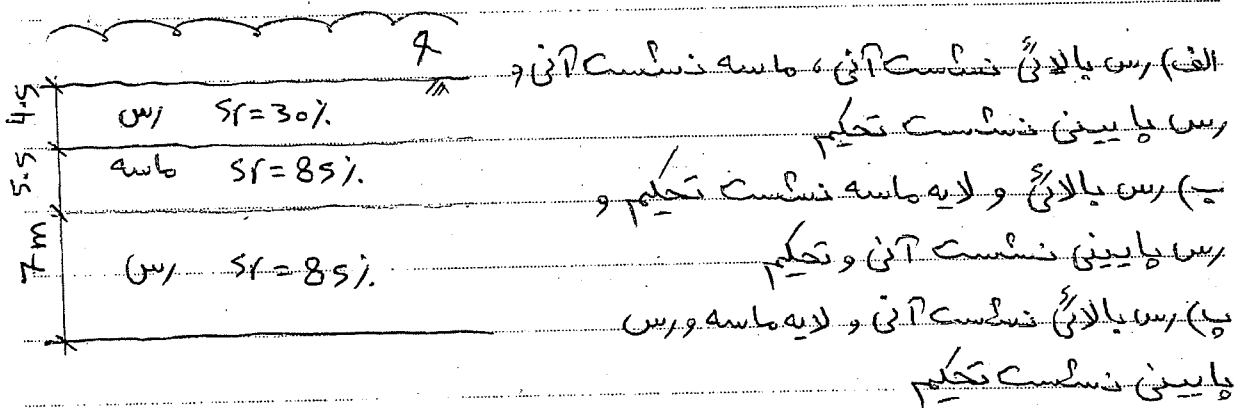 q
الف) رس بالائی نشست آنی، ماسه نشست آنی و
رس پایینی نشست تحکیم
ب) رس بالائی و لایه ماسه نشست تحکیم و
رس پایینی نشست آنی و تحکیم
پ) رس بالائی نشست آنی و لایه ماسه و رس
پایینی نشست تحکیم
4.5 رس Sr=30%
5.5 ماسه Sr=85%.
7m رس Sr=85%.